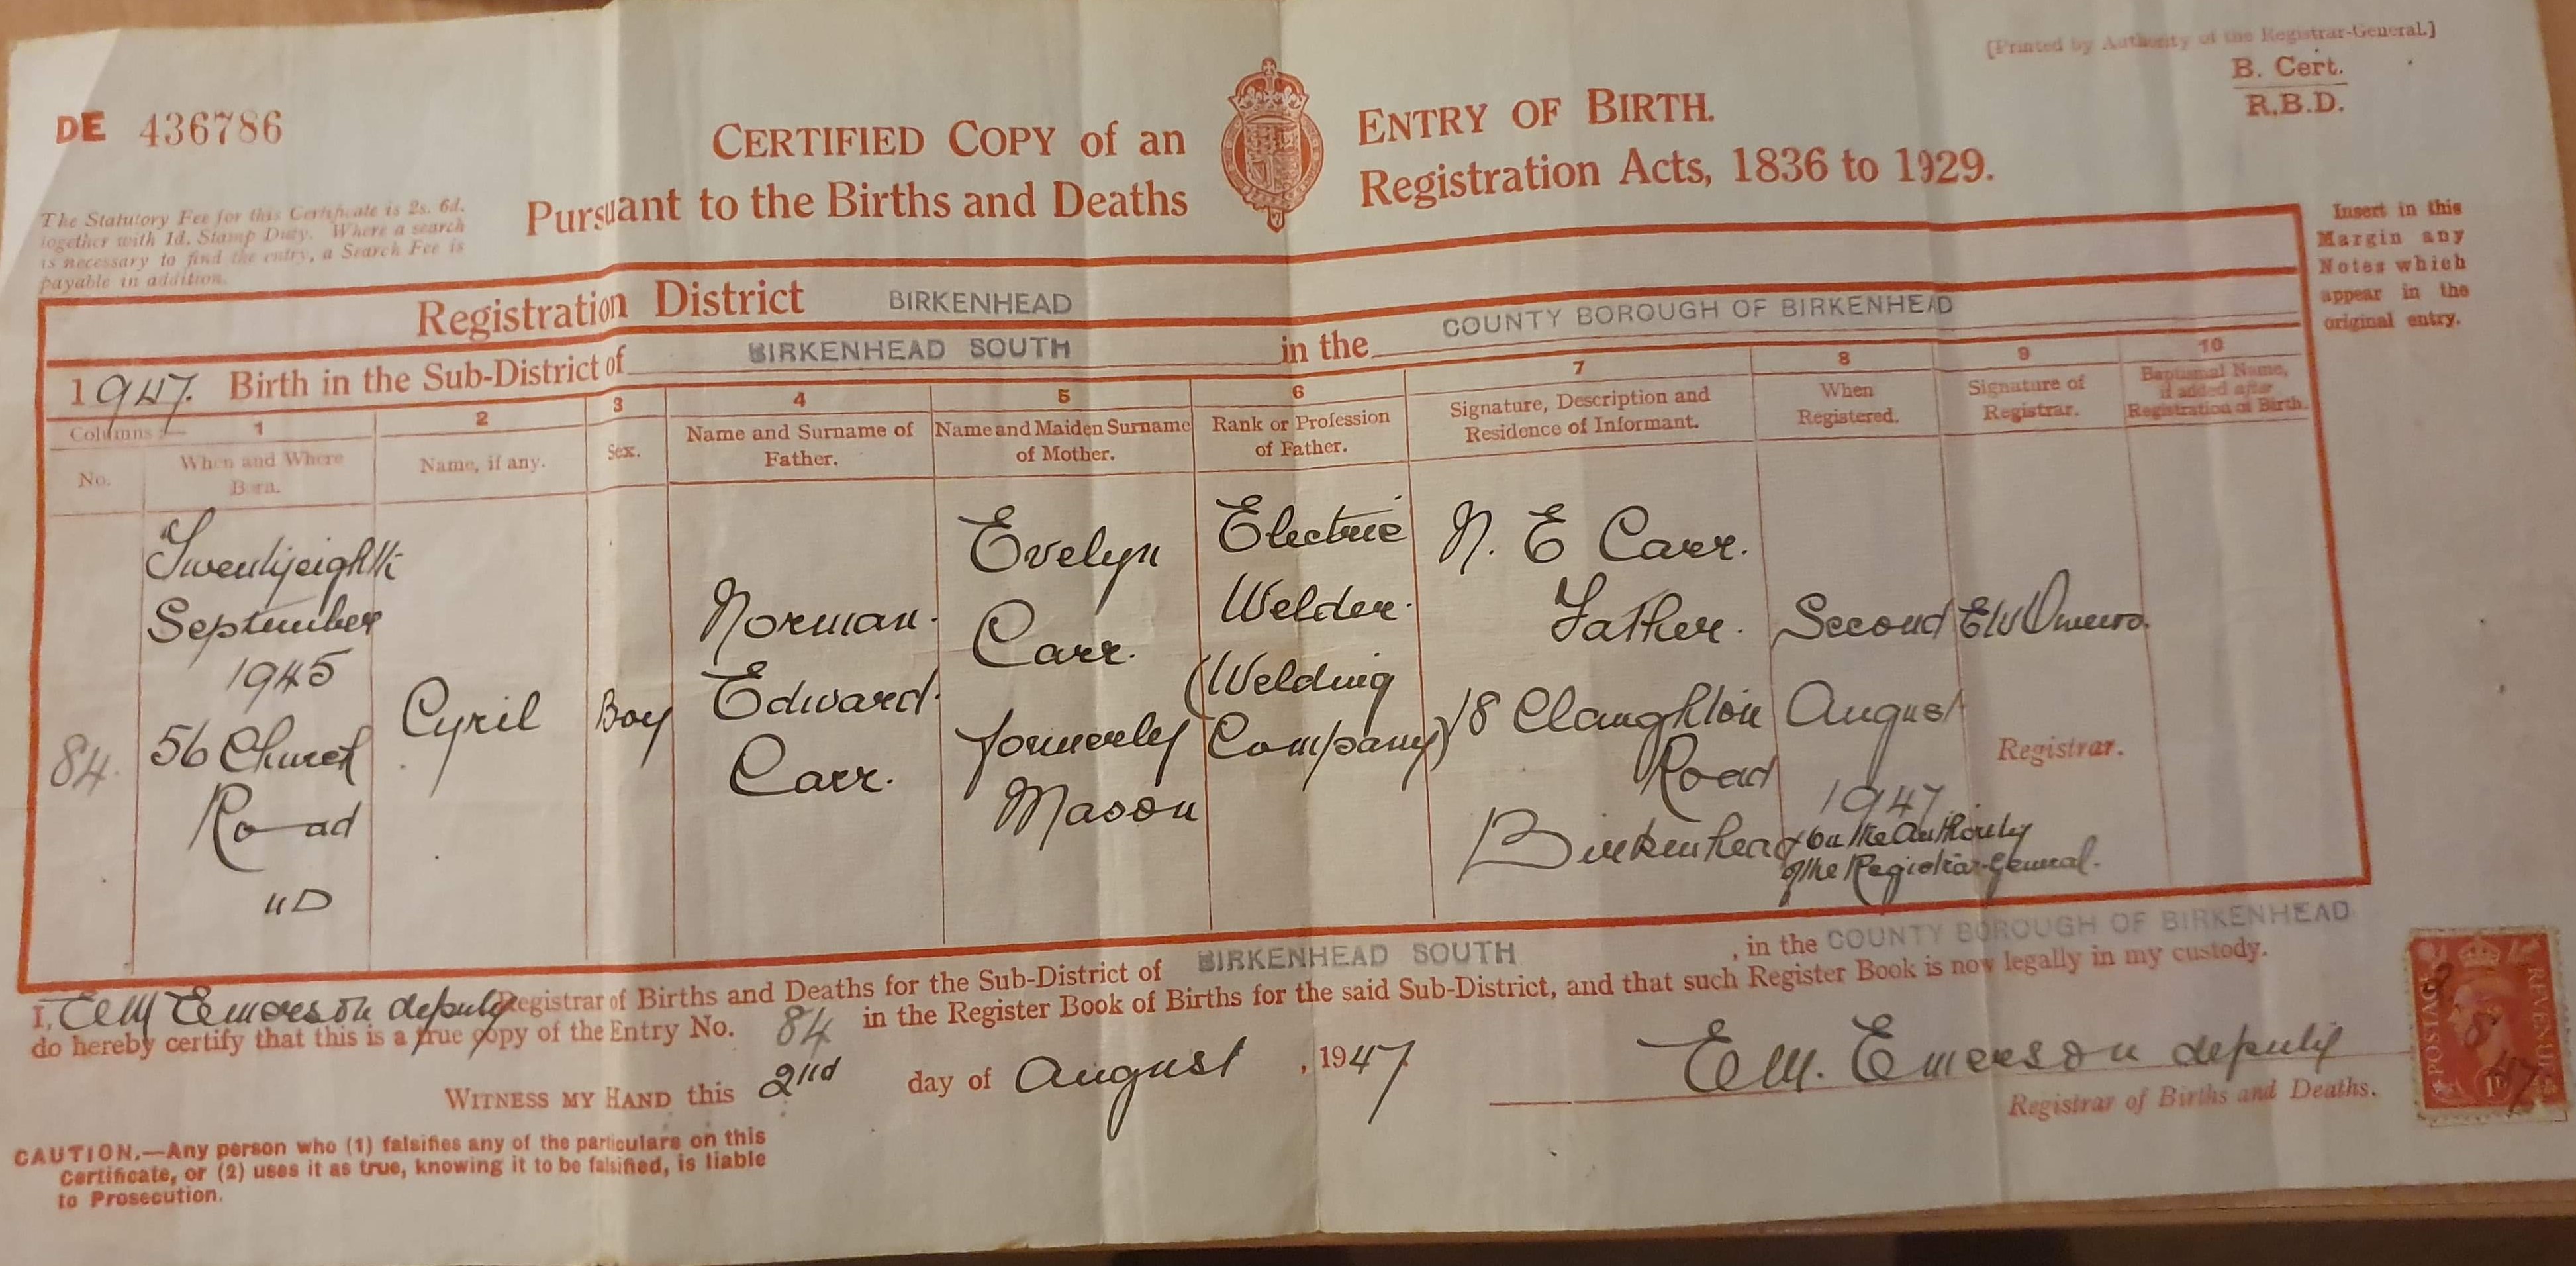 [Printed by Authority of the Registrar-General.]
B. Cert.
R.B.D.
DE 436786
CERTIFIED COPY of an ENTRY OF BIRTH.
Pursuant to the Births and Deaths Registration Acts, 1836 to 1929.
The Statutory Fee for this Certificate is 2s. 6d.
together with 1d. Stamp Duty. Where a search
is necessary to find the entry, a Search Fee is
payable in addition.
Insert in this
Margin any
Notes which
appear in the
original entry.
Registration District BIRKENHEAD
1947. Birth in the Sub-District of BIRKENHEAD SOUTH in the COUNTY BOROUGH OF BIRKENHEAD
Columns :— 1 2 3 4 5 6 7 8 9 10
No.
When and Where
Born.
Name, if any.
Sex.
Name and Surname of
Father.
Name and Maiden Surname
of Mother.
Rank or Profession
of Father.
Signature, Description and
Residence of Informant.
When
Registered.
Signature of
Registrar.
Baptismal Name,
if added after
Registration of Birth.
84.
Twentyeighth
September
1945
56 Church
Road
UD
Cyril
Boy
Norman
Edward
Carr.
Evelyn
Carr.
formerly
Mason
Electric
Welder.
(Welding
Company)
N. E Carr.
Father.
18 Claughton
Road
Birkenhead
Second
August
1947
on the Authority
of the Registrar-General.
Registrar.
I, E M Emerson deputy Registrar of Births and Deaths for the Sub-District of BIRKENHEAD SOUTH, in the COUNTY BOROUGH OF BIRKENHEAD
do hereby certify that this is a true copy of the Entry No. 84 in the Register Book of Births for the said Sub-District, and that such Register Book is now legally in my custody.
WITNESS MY HAND this 2nd day of August, 1947
E M. Emerson deputy
Registrar of Births and Deaths.
CAUTION.—Any person who (1) falsifies any of the particulars on this
Certificate, or (2) uses it as true, knowing it to be falsified, is liable
to Prosecution.
POSTAGE
REVENUE
2
8
47